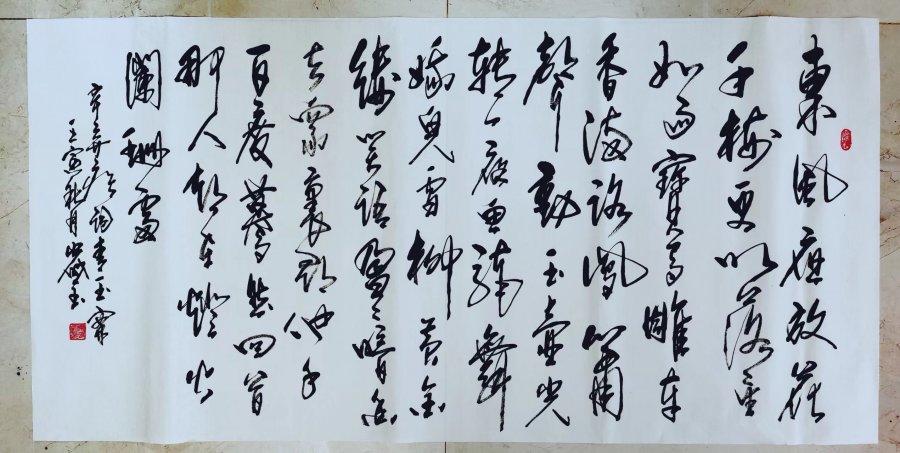 東風夜放花
千樹更吹落星
如雨寶馬雕車
香滿路鳳簫
聲動玉壺光
轉一夜魚龍舞
蛾兒雪柳黃金
縷笑語盈〻暗香
去眾裏尋他千
百度驀然回首
那人却在燈火
闌珊處
辛弃疾词青玉案
壬寅秋月